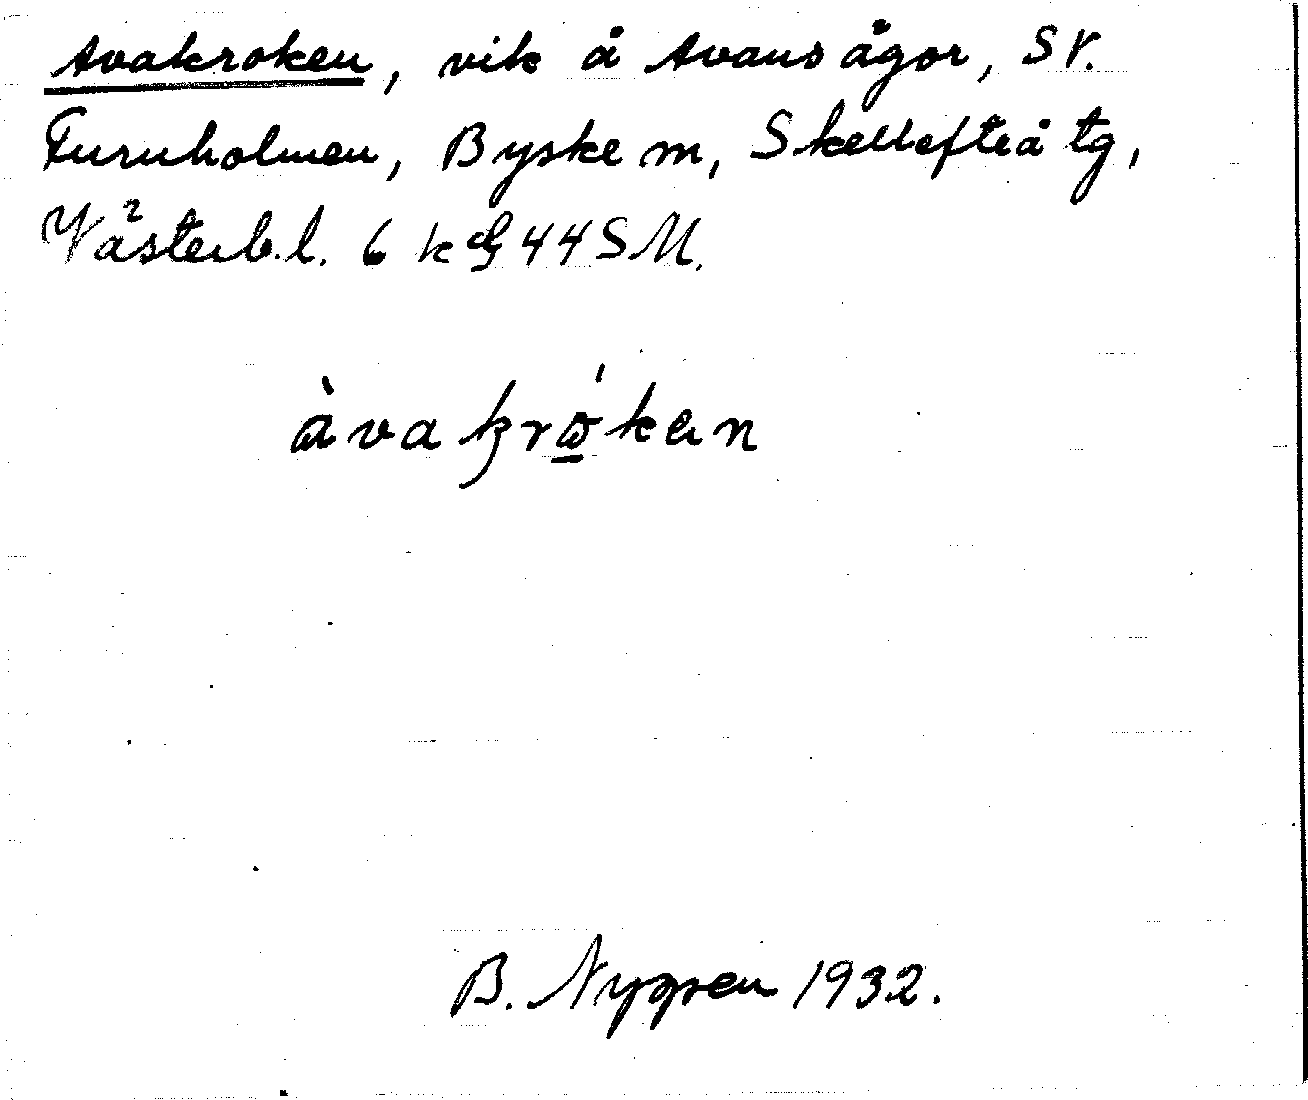 Avakroken, vik å Avans ägor, SV.
Furuholmen, Byske sn, Skellefteå tg,
Västerb.l. 6 k 44 SM.
àvakrókan
B. Nygren 1932.